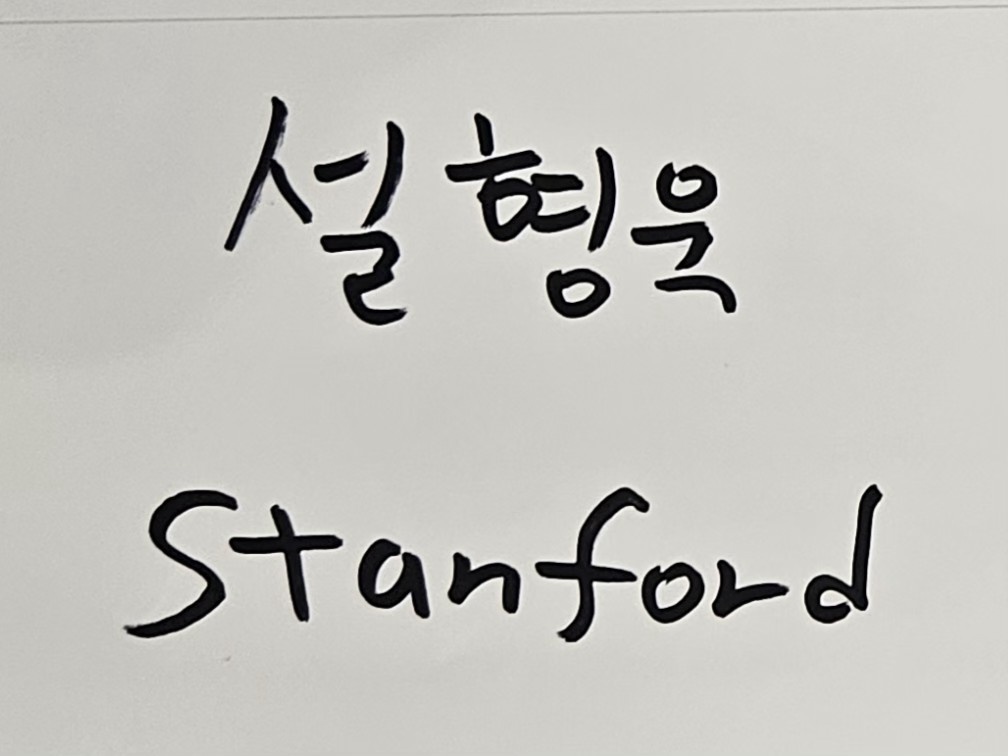 설형욱
Stanford